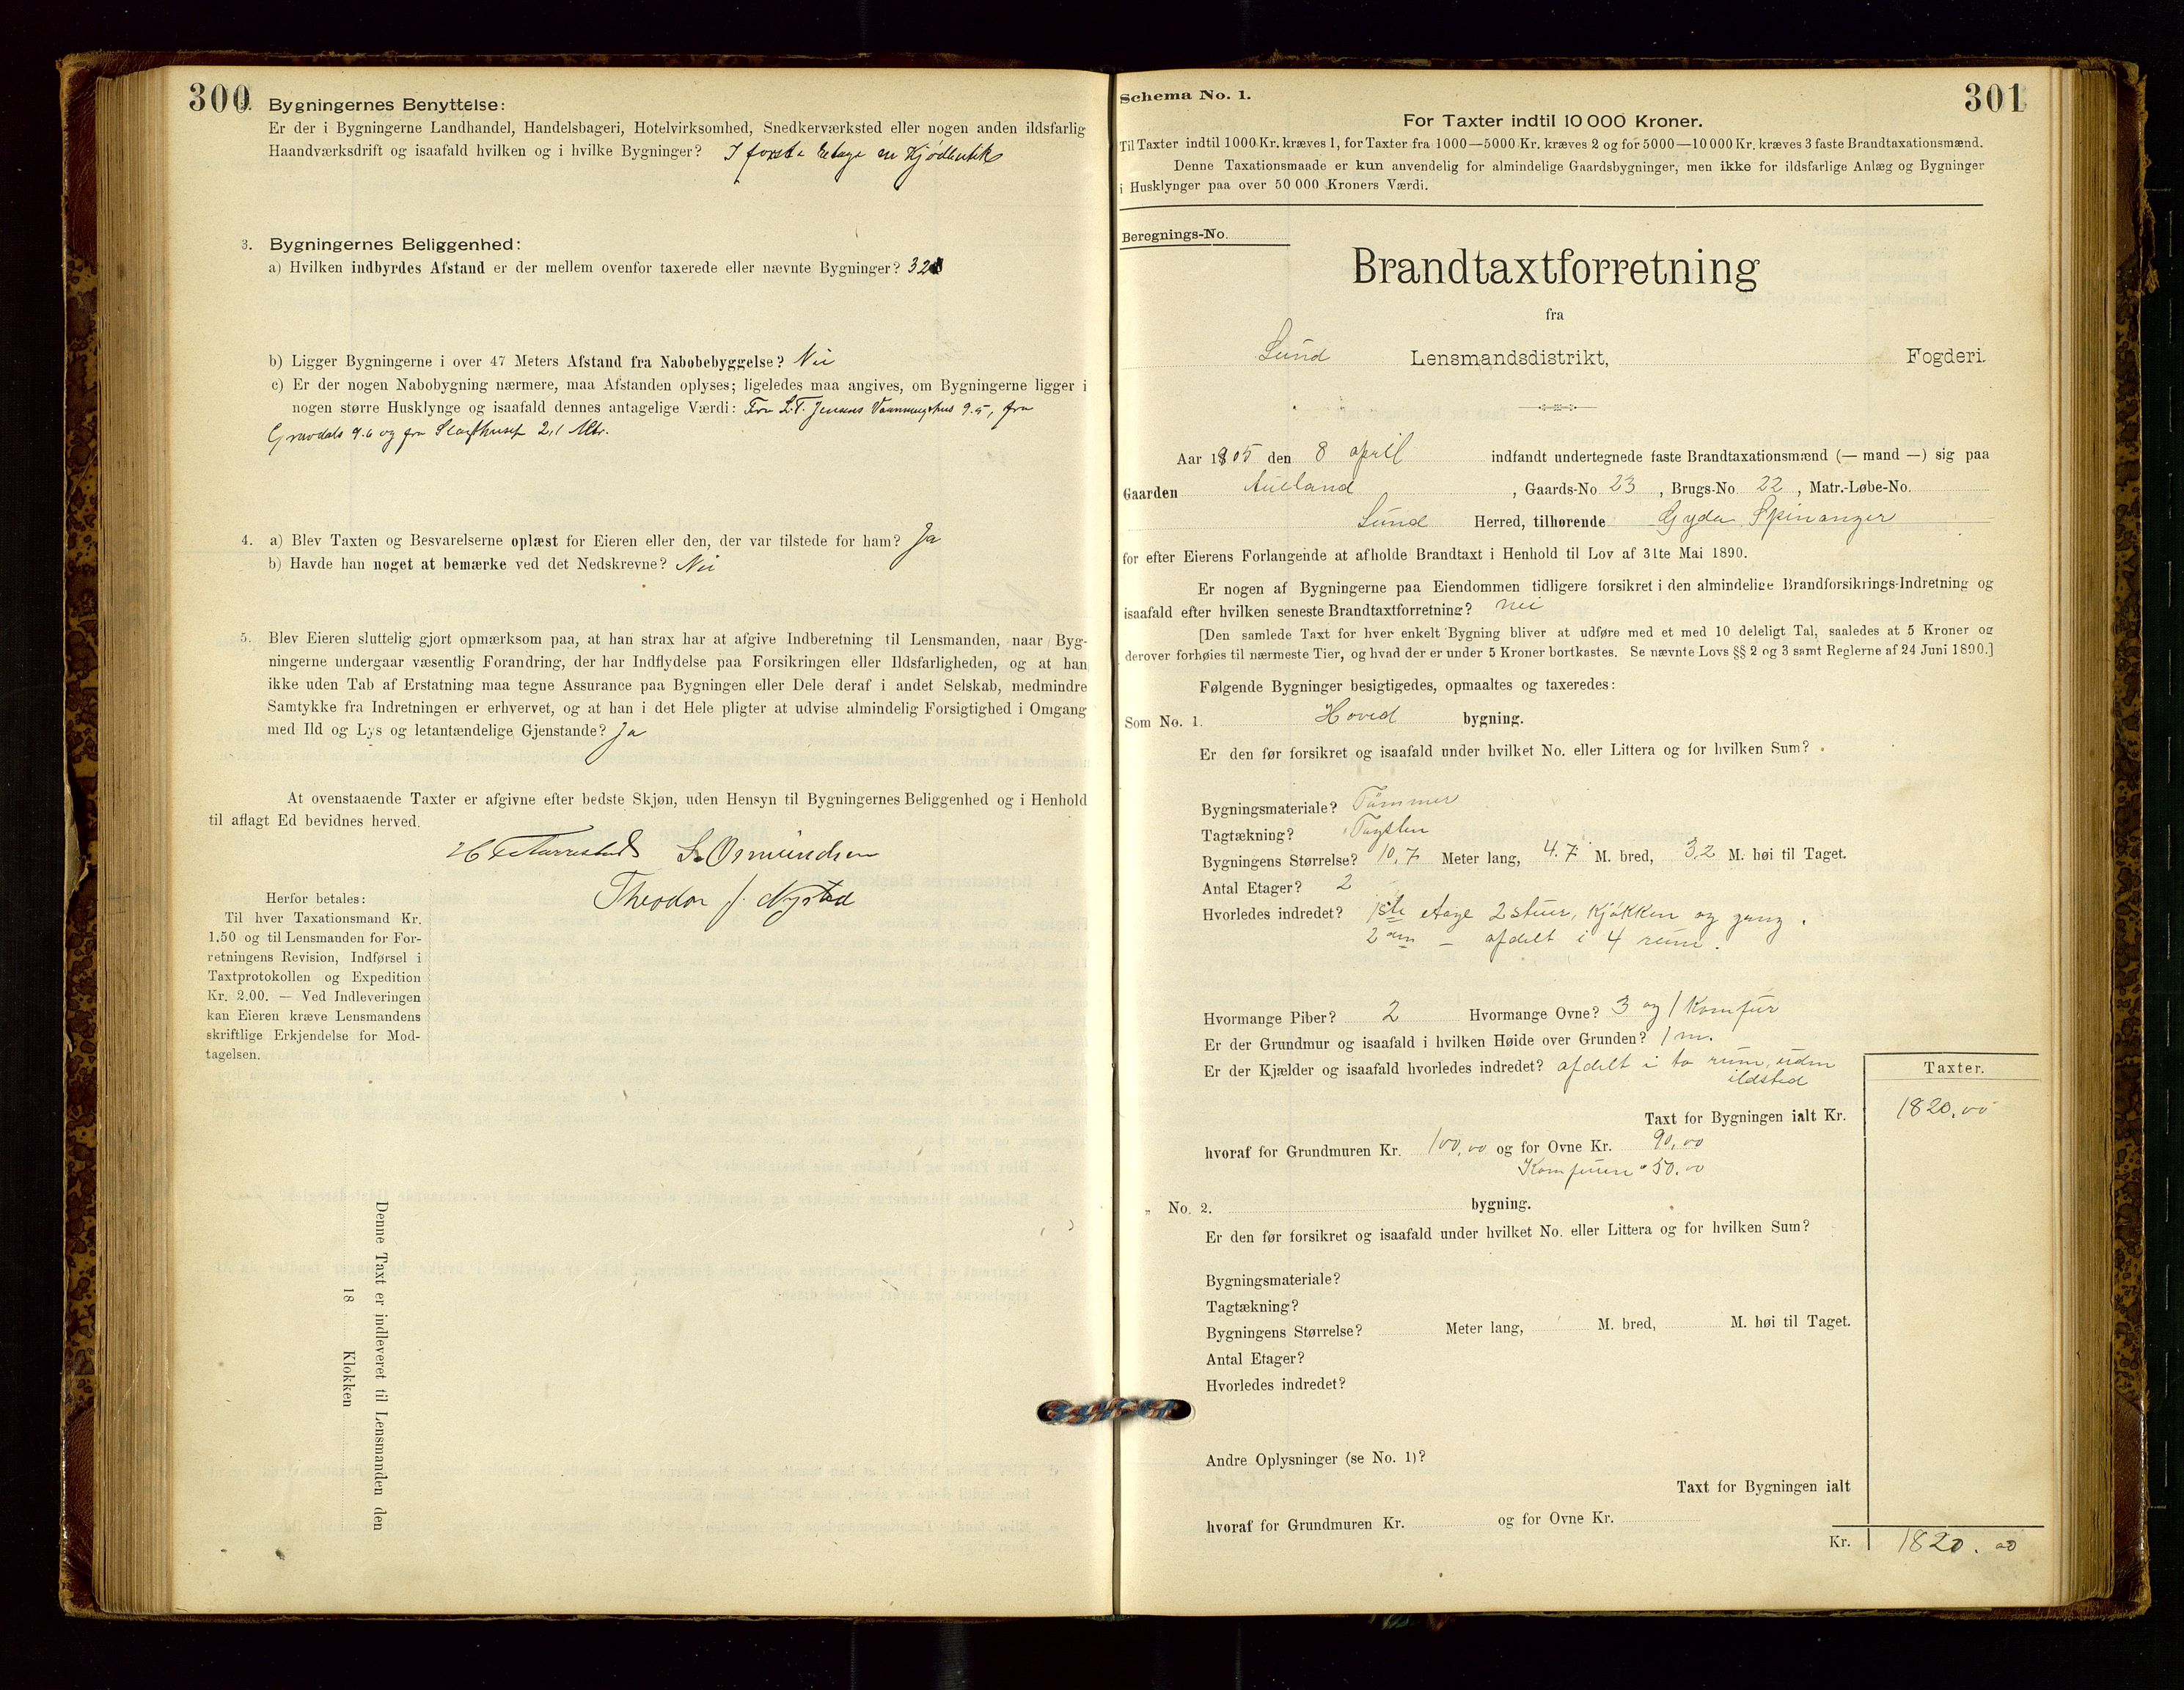 300
2. Bygningernes Benyttelse:
Er der i Bygningerne Landhandel, Handelsbageri, Hotelvirksomhed, Snedkerværksted eller nogen anden ildsfarlig
Haandværksdrift og isaafald hvilken og i hvilke Bygninger? I første Etage en Kjødbutik
3. Bygningernes Beliggenhed:
a) Hvilken indbyrdes Afstand er der mellem ovenfor taxerede eller nævnte Bygninger? 32
b) Ligger Bygningerne i over 47 Meters Afstand fra Nabobebyggelse? Nei
c) Er der nogen Nabobygning nærmere, maa Afstanden oplyses; ligeledes maa angives, om Bygningerne ligger i
nogen større Husklynge og isaafald dennes antagelige Værdi: Fra L.T. Jensens Vaaningshus 9.5, fra
Gravdals 9.6 og fra Slagthuset 2,1 Mtr.
4. a) Blev Taxten og Besvarelserne oplæst for Eieren eller den, der var tilstede for ham? Ja
b) Havde han noget at bemærke ved det Nedskrevne? Nei
5. Blev Eieren sluttelig gjort opmærksom paa, at han strax har at afgive Indberetning til Lensmanden, naar Byg-
ningerne undergaar væsentlig Forandring, der har Indflydelse paa Forsikringen eller Ildsfarligheden, og at han
ikke uden Tab af Erstatning maa tegne Assurance paa Bygningen eller Dele deraf i andet Selskab, medmindre
Samtykke fra Indretningen er erhvervet, og at han i det Hele pligter at udvise almindelig Forsigtighed i Omgang
med Ild og Lys og letantændelige Gjenstande? Ja
At ovenstaaende Taxter er afgivne efter bedste Skjøn, uden Hensyn til Bygningernes Beliggenhed og i Henhold
til aflagt Ed bevidnes herved.
S. Osmundsen
Theodor J. Nysted
Herfor betales:
Til hver Taxationsmand Kr.
1.50 og til Lensmanden for For-
retningens Revision, Indførsel i
Taxtprotokollen og Expedition
Kr. 2.00. — Ved Indleveringen
kan Eieren kræve Lensmandens
skriftlige Erkjendelse for Mod-
tagelsen.
Denne Taxt er indleveret til Lensmanden den
18 Klokken
Schema No. 1.
301
For Taxter indtil 10 000 Kroner.
Til Taxter indtil 1000 Kr. kræves 1, for Taxter fra 1000—5000 Kr. kræves 2 og for 5000—10 000 Kr. kræves 3 faste Brandtaxationsmænd.
Denne Taxationsmaade er kun anvendelig for almindelige Gaardsbygninger, men ikke for ildsfarlige Anlæg og Bygninger
i Husklynger paa over 50 000 Kroners Værdi.
Beregnings-No.
Brandtaxtforretning
fra
Sund Lensmandsdistrikt, Fogderi.
Aar 1905 den 8 april indfandt undertegnede faste Brandtaxationsmænd (— mand —) sig paa
Gaarden Aueland , Gaards-No. 23 , Brugs-No. 22 , Matr.-Løbe-No.
Sund Herred, tilhørende Gyda Spinanger
for efter Eierens Forlangende at afholde Brandtaxt i Henhold til Lov af 31te Mai 1890.
Er nogen af Bygningerne paa Eiendommen tidligere forsikret i den almindelige Brandforsikrings-Indretning og
isaafald efter hvilken seneste Brandtaxtforretning? nei
[Den samlede Taxt for hver enkelt Bygning bliver at udføre med et med 10 deleligt Tal, saaledes at 5 Kroner og
derover forhøies til nærmeste Tier, og hvad der er under 5 Kroner bortkastes. Se nævnte Lovs §§ 2 og 3 samt Reglerne af 24 Juni 1890.]
Følgende Bygninger besigtigedes, opmaaltes og taxeredes:
Som No. 1. Hoved bygning.
Er den før forsikret og isaafald under hvilket No. eller Littera og for hvilken Sum?
Bygningsmateriale? Tømmer
Tagtækning? Tagsten
Bygningens Størrelse? 10,7 Meter lang, 4.7 M. bred, 3,2 M. høi til Taget.
Antal Etager? 2
Hvorledes indredet? 1ste etage 2 stuer, kjøkken og gang.
2den — afdelt i 4 rum.
Hvormange Piber? 2 Hvormange Ovne? 3 og 1 Komfur
Er der Grundmur og isaafald i hvilken Høide over Grunden? 1 m.
Er der Kjælder og isaafald hvorledes indredet? afdelt i to rum, uden
ildsted
Taxter.
Taxt for Bygningen ialt Kr. 1820,00
hvoraf for Grundmuren Kr. 100,00 og for Ovne Kr. 90,00
Komfuren " 50,00
„ No. 2. bygning.
Er den før forsikret og isaafald under hvilket No. eller Littera og for hvilken Sum?
Bygningsmateriale?
Tagtækning?
Bygningens Størrelse? Meter lang, M. bred, M. høi til Taget.
Antal Etager?
Hvorledes indredet?
Andre Oplysninger (se No. 1)?
Taxt for Bygningen ialt
hvoraf for Grundmuren Kr. og for Ovne Kr.
Kr. 1820.00